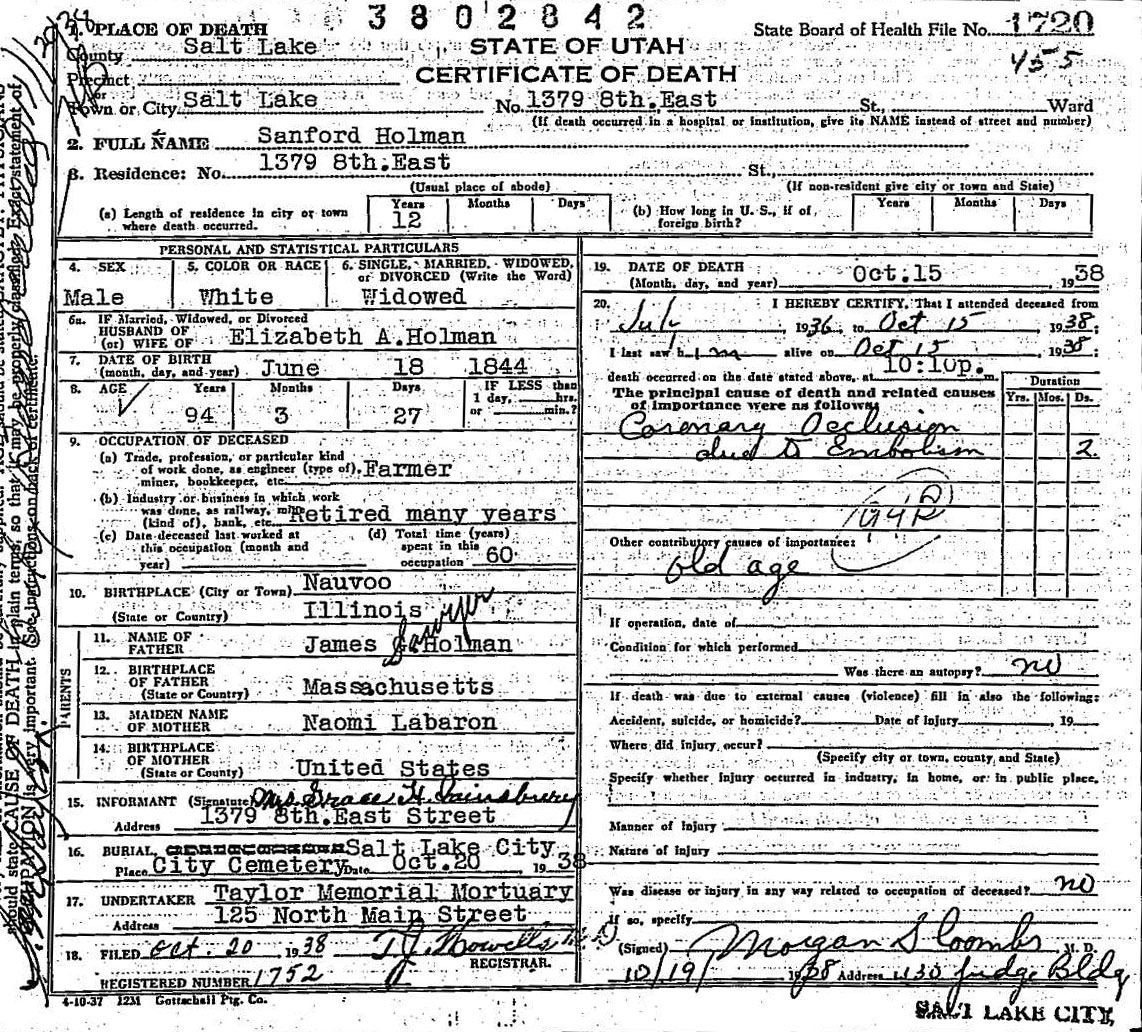 3802842
1. PLACE OF DEATH
State Board of Health File No. 1720
County Salt Lake
STATE OF UTAH
455
Precinct
CERTIFICATE OF DEATH
or
Town or City Salt Lake No. 1379 8th.East St., Ward
(If death occurred in a hospital or institution, give its NAME instead of street and number)
2. FULL NAME Sanford Holman
3. Residence: No. 1379 8th.East St.,
(Usual place of abode) (If non-resident give city or town and State)
(a) Length of residence in city or town where death occurred. Years 12 Months Days
(b) How long in U. S., if of foreign birth? Years Months Days
PERSONAL AND STATISTICAL PARTICULARS
4. SEX Male
5. COLOR OR RACE White
6. SINGLE, MARRIED, WIDOWED, or DIVORCED (Write the Word) Widowed
6a. IF Married, Widowed, or Divorced
HUSBAND OF
(or) WIFE OF Elizabeth A.Holman
7. DATE OF BIRTH
(month, day, and year) June 18 1844
8. AGE Years 94 Months 3 Days 27 IF LESS than 1 day, hrs. or min.?
9. OCCUPATION OF DECEASED
(a) Trade, profession, or particular kind
of work done, as engineer (type of), Farmer
miner, bookkeeper, etc.
(b) Industry or business in which work
was done, as railway, mine
(kind of), bank, etc. Retired many years
(c) Date deceased last worked at
this occupation (month and
year)
(d) Total time (years)
spent in this
occupation 60
10. BIRTHPLACE (City or Town) Nauvoo
(State or Country) Illinois
PARENTS
11. NAME OF FATHER James Sawyer Holman
12. BIRTHPLACE OF FATHER
(State or Country) Massachusetts
13. MAIDEN NAME OF MOTHER Naomi Labaron
14. BIRTHPLACE OF MOTHER
(State or Country) United States
15. INFORMANT (Signature) Mrs Grace H. Sainsbury
Address 1379 8th.East Street
16. BURIAL, Salt Lake City
Place City Cemetery Date Oct.20 1938
17. UNDERTAKER Taylor Memorial Mortuary
Address 125 North Main Street
18. FILED Oct. 20 1938 T.J. Howells M.D.
REGISTRAR.
REGISTERED NUMBER 1752
4-10-37 12M Gottschall Ptg. Co.
19. DATE OF DEATH
(Month, day, and year) Oct.15 1938
20. I HEREBY CERTIFY, That I attended deceased from
July, 1936, to Oct 15, 1938;
I last saw him alive on Oct 15, 1938;
death occurred on the date stated above, at 10:10p. m.
The principal cause of death and related causes
of importance were as follows:
Duration
Yrs. Mos. Ds.
Coronary Occlusion
due to Embolism 2.
94B
Other contributory causes of importance:
old age
If operation, date of
Condition for which performed
Was there an autopsy? no
If death was due to external causes (violence) fill in also the following:
Accident, suicide, or homicide? Date of Injury, 19
Where did injury occur?
(Specify city or town, county, and State)
Specify whether injury occurred in industry, in home, or in public place.
Manner of injury
Nature of injury
Was disease or injury in any way related to occupation of deceased? no
If so, specify
(Signed) Morgan S Coombs M. D.
10/19/ 1938 Address 1130 Judge Bldg
SALT LAKE CITY,